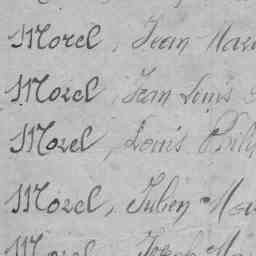 Morel, Jean Mar
Morel, Jean Louis
Morel, Louis Phil
Morel, Julien Mar
Morel, Joseph Mar